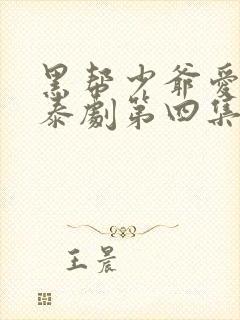 黑帮少爷爱
泰劇第四集
王晨